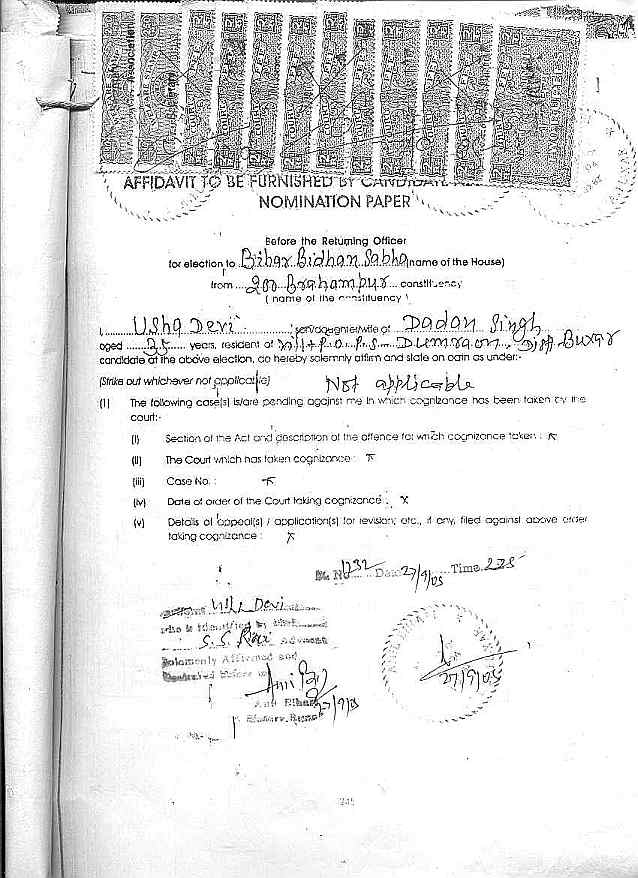 AFFIDAVIT TO BE FURNISHED BY CANDIDATE
NOMINATION PAPER
Before the Returning Officer
for election to Bihar Bidhan Sabha (name of the House)
from 200 Brahampur constituency
( name of the constituency )
I, Usha Devi son/daughter/wife of Dadan Singh
aged 35 years, resident of Vill+P.O. P.S. Dumraon, Dist Buxar
candidate at the above election, do hereby solemnly affirm and state on oath as under:-
(Strike out whichever not applicable) Not applicable
(1) The following case(s) is/are pending against me in which cognizance has been taken by the
court:-
(i) Section of the Act and description of the offence for which cognizance taken : x
(ii) The Court which has taken cognizance : x
(iii) Case No. : x
(iv) Date of order of the Court taking cognizance : x
(v) Details of appeal(s) / application(s) for revision, etc., if any, filed against above order
taking cognizance : x
Sl. No 1232 Date 27/9/05 Time 2.25
Usha Devi
who is identified by
S. S. Advocate
Solemnly Affirmed and
before
27/9/05
27/9/05